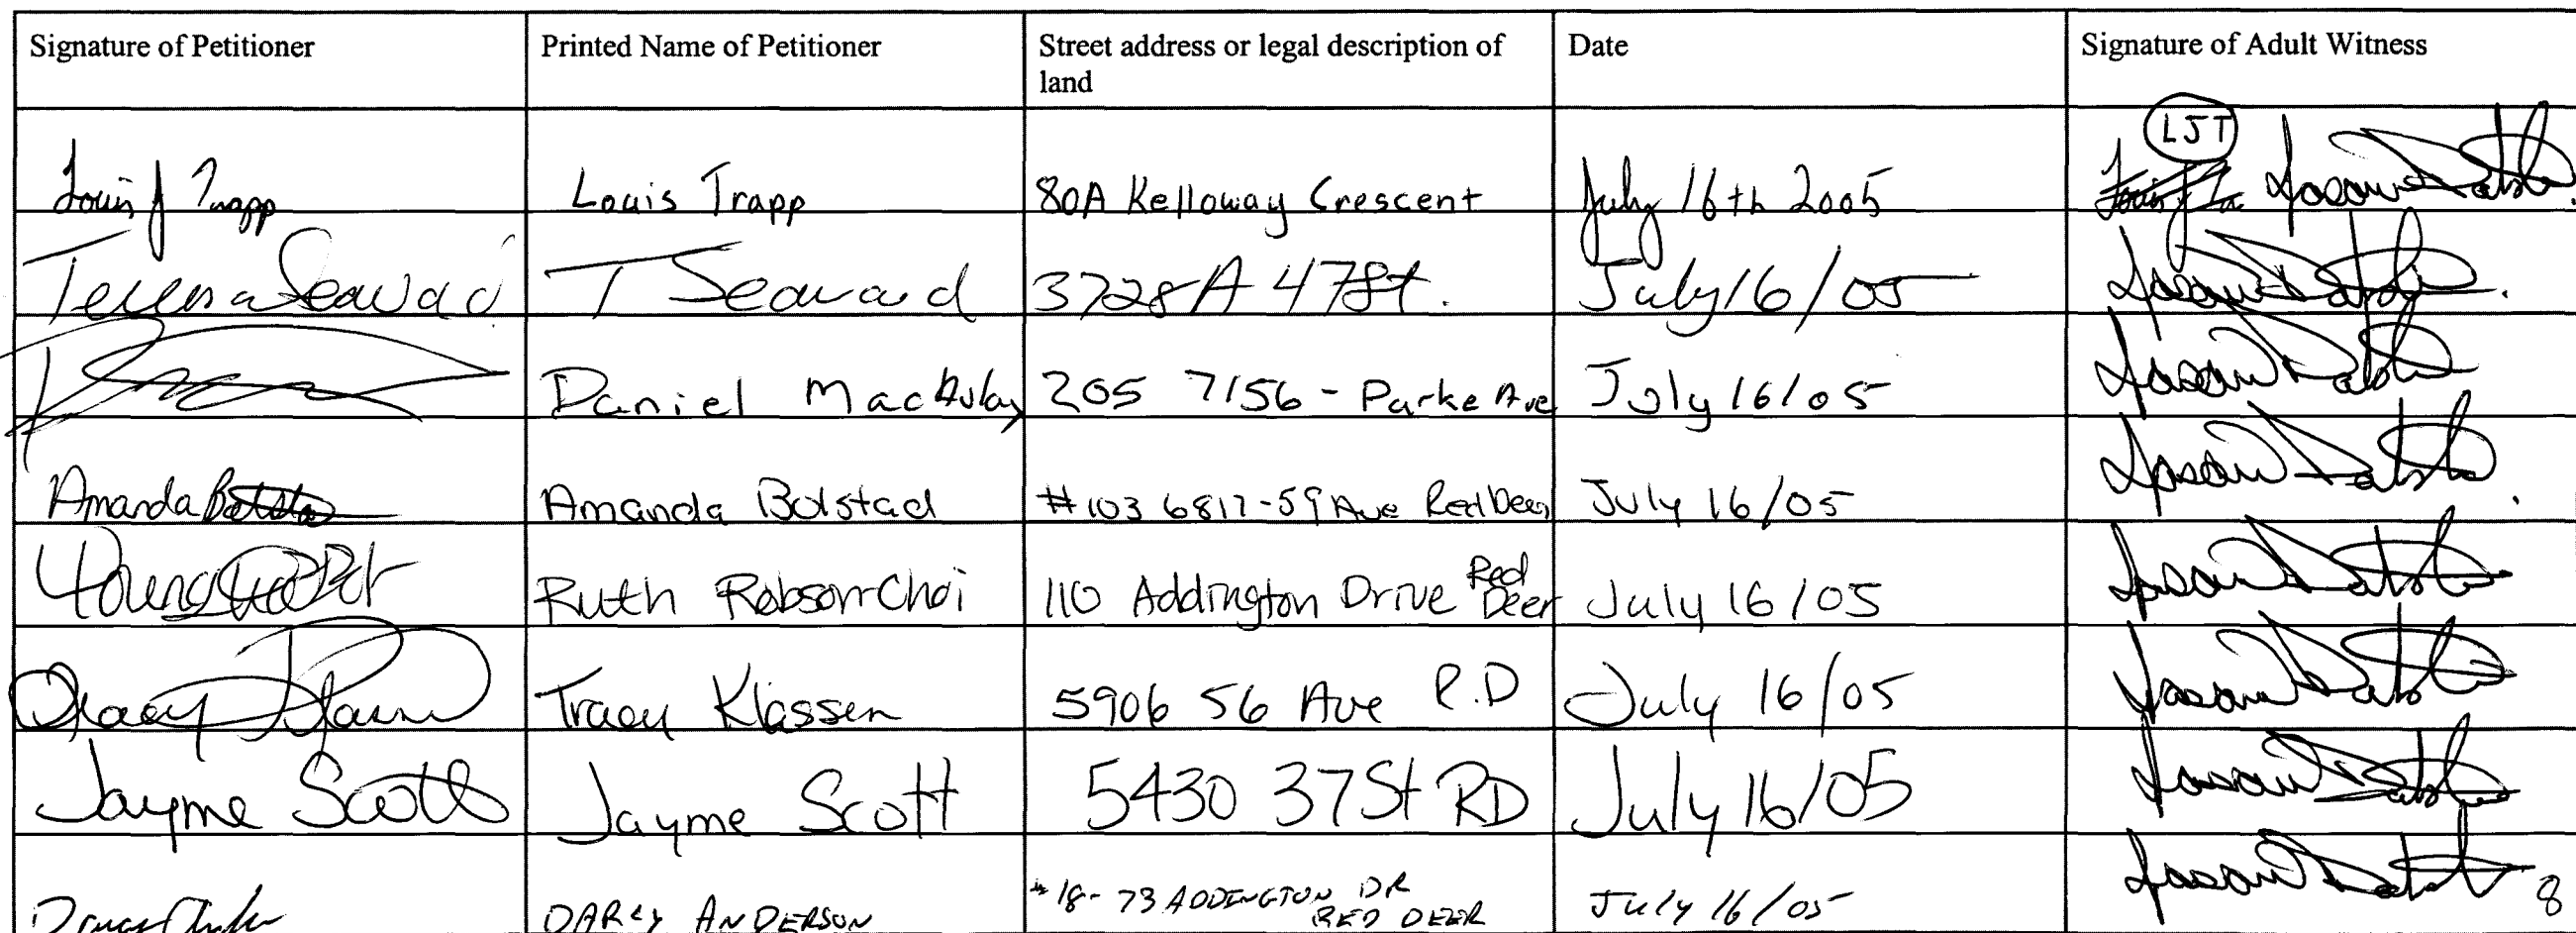 Signature of Petitioner Printed Name of Petitioner Street address or legal description of land Date Signature of Adult Witness
LJT
Louis J Trapp Louis Trapp 80A Kelloway Crescent July 16th 2005
Teresa Seaward T Seaward 3728A 47St. July 16/05
Daniel MacAulay 205 7156 - Parke Ave July 16/05
Amanda Amanda Bolstad #103 6817-59 Ave Red Deer July 16/05
Ruth Robson-Choi 110 Addington Drive Red Deer July 16/05
Tracy Klassen Tracy Klassen 5906 56 Ave R.D July 16/05
Jayme Scott Jayme Scott 5430 37 St RD July 16/05
DARCY ANDERSON #18-73 ADDINGTON DR RED DEER July 16/05
8